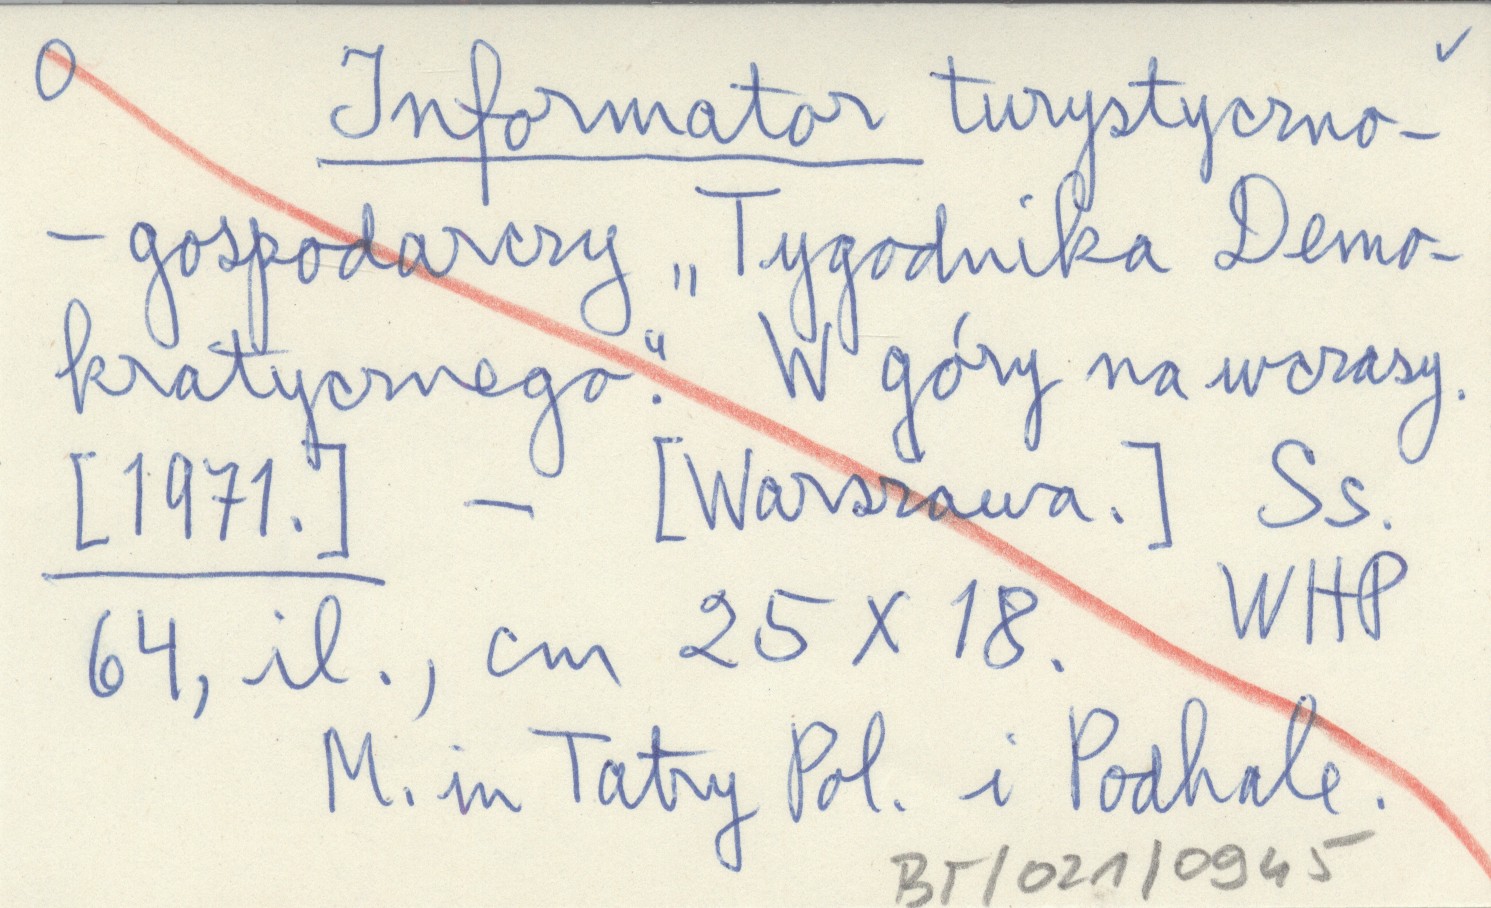 0 Informator turystyczno-
-gospodarczy „Tygodnika Demo-
kratycznego". W góry na wczasy.
[1971.] – [Warszawa.] Ss.
WHP
64, il., cm 25 x 18.
M. in Tatry Pol. i Podhale.
BT/021/0945